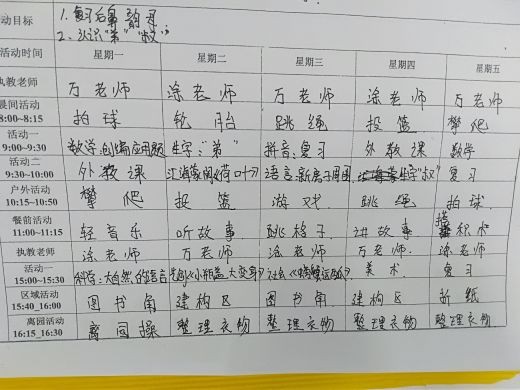 动目标 1.复习后鼻韵母
2.认识"弟""叔"
活动时间 星期一 星期二 星期三 星期四 星期五
执教老师 万老师 涂老师 万老师 涂老师 万老师
晨间活动 8:00~8:15 拍球 轮胎 跳绳 投篮 攀爬
活动一 9:00~9:30 数学:创编应用题 生字:"弟" 拼音:复习 外教课 数学
活动二 9:30~10:00 外教课 (荷叶) 语言: 生字"叔" 复习
户外活动 10:15~10:50 攀爬 投篮 游戏 跳绳 拍球
餐前活动 11:00~11:15 轻音乐 听故事 跳格子 讲故事 搭积木
执教老师 涂老师 万老师 涂老师 万老师. 涂老师
活动一 15:00~15:30 科学:大自然的语言 《小瓶盖大变身》 社会 美术 复习
区域活动 15:40_16:00 图书角 建构区 图书角 建构区 折纸
离园活动 16:15_16:30 离园操 整理衣物 整理衣物 整理衣物 整理衣物